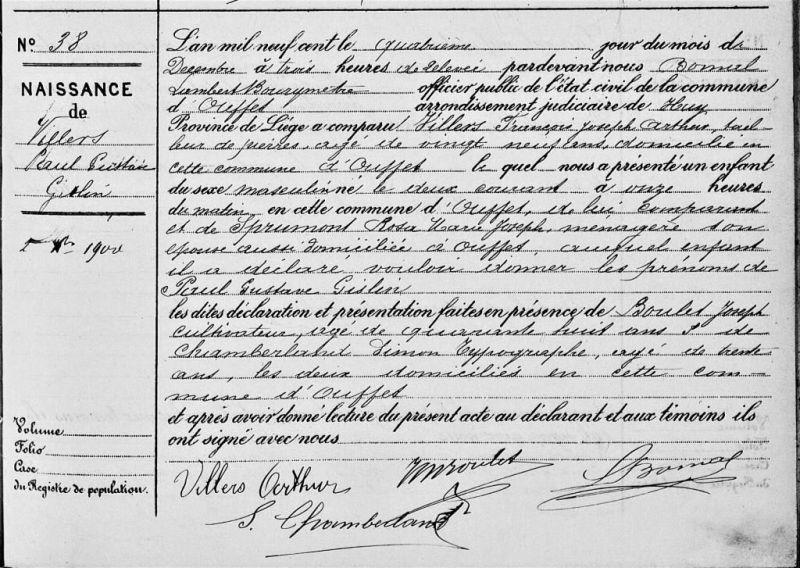 N° 38
NAISSANCE
de
Villers
Paul Gustave
Gislin
Xbre 1900
Volume
Folio
Case
du Registre de population.
L'an mil neuf cent le quatrième jour du mois de
Decembre à trois heures de relevée pardevant nous Bomal
Lambert Bourgmestre officier public de l'état civil de la commune
d'Ouffet arrondissement judiciaire de Huy
Province de Liége a comparu Villers François Joseph Arthur, tail-
leur de pierres, agé de vingt neuf ans, domicilié en
cette commune d'Ouffet le quel nous a présenté un enfant
du sexe masculin né le deux courant à onze heures
du matin en cette commune d'Ouffet, de lui Comparant
et de Sprumont Rosa Marie Joseph, menagère son
epouse aussi domiciliée à Ouffet, auquel enfant
il a déclaré vouloir donner les prénoms de
Paul Gustave Gislin
les dites déclaration et présentation faites en présence de Boulet Joseph
cultivateur, agé de quarante huit ans & de
Chamberland Simon Typographe, agé de trente
ans, les deux domiciliés en cette com-
mune d'Ouffet
et après avoir donné lecture du présent acte au déclarant et aux témoins ils
ont signé avec nous
Villers Arthur Boulet LBomal
S. Chamberland